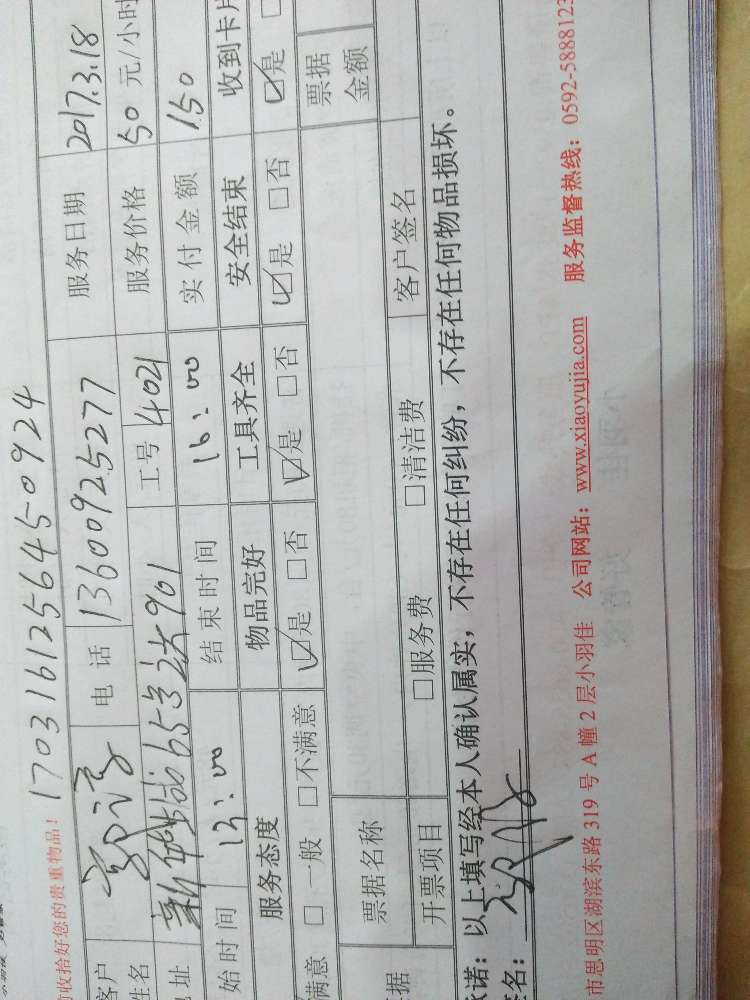 收拾好您的贵重物品! 17031612564509​24
客户 电话 13600925277 服务日期 2017.3.18
姓名 工号 4021 服务价格 50 元/小时
地址 65号 901
始时间 13:00 结束时间 16:00 实付金额 150
服务态度 物品完好 工具齐全 安全结束 收到卡片
满意 □一般 □不满意 ☑是 □否 ☑是 □否 ☑是 □否 ☑是
票据名称 票据金额
据 开票项目 □服务费 □清洁费 客户签名
承诺：以上填写经本人确认属实，不存在任何纠纷，不存在任何物品损坏。
签名：
市思明区湖滨东路 319 号 A 幢 2 层小羽佳 公司网站：www.xiaoyujia.com 服务监督热线：0592-5888123